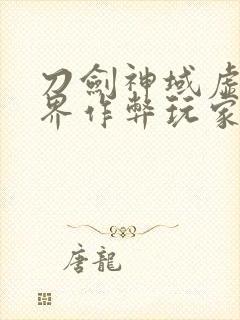 刀劍神域虛
界作弊玩家
唐龍